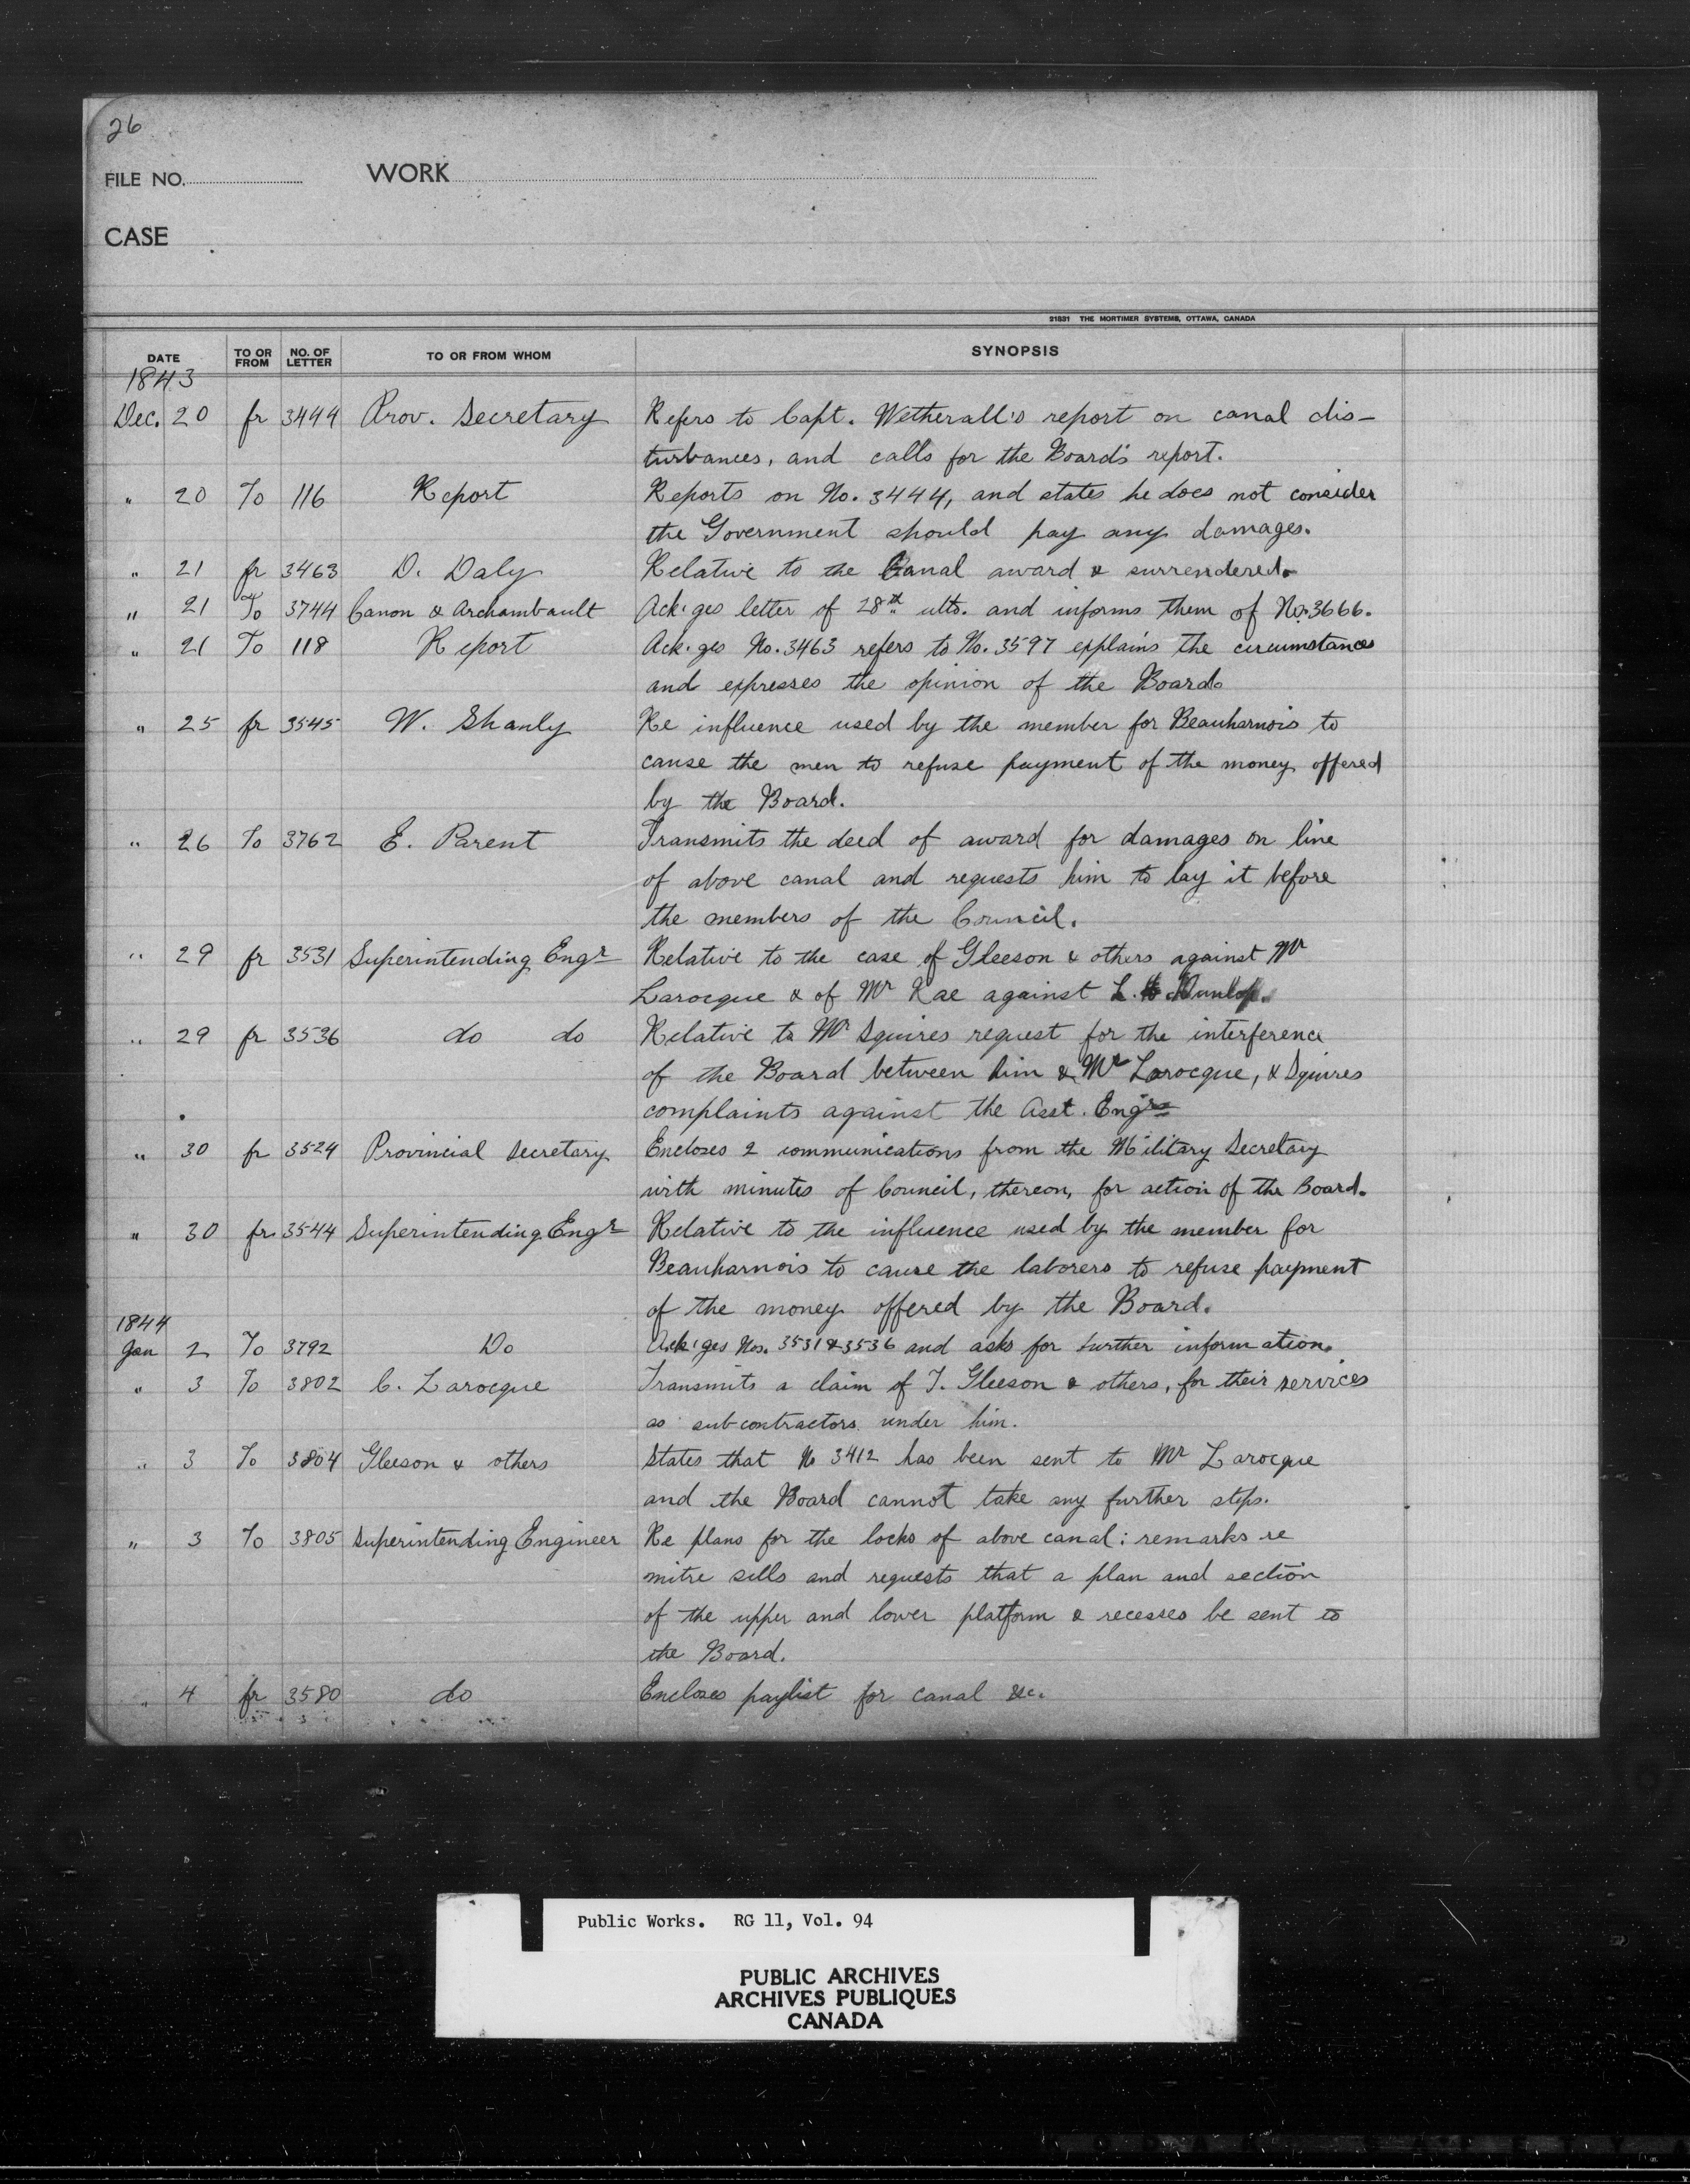 26
FILE NO. WORK
CASE
21831 THE MORTIMER SYSTEMS, OTTAWA, CANADA
DATE TO OR FROM NO. OF LETTER TO OR FROM WHOM SYNOPSIS
1843
Dec. 20 fr 3444 Prov. Secretary Refers to Capt. Wetherall's report on canal dis-
turbances, and calls for the Board's report.
" 20 To 116 Report Reports on No. 3444, and states he does not consider
the Government should pay any damages.
" 21 fr 3463 D. Daly Relative to the Canal award & surrendered.
" 21 To 3744 Canon & Archambault Ack'ges letter of 28th ulto. and informs them of No. 3666.
" 21 To 118 Report Ack'ges No. 3463 refers to No. 3597 explains the circumstances
and expresses the opinion of the Board.
" 25 fr 3545 W. Shanly Re influence used by the member for Beauharnois to
cause the men to refuse payment of the money offered
by the Board.
" 26 To 3762 E. Parent Transmits the deed of award for damages on line
of above canal and requests him to lay it before
the members of the Council.
" 29 fr 3531 Superintending Engr Relative to the case of Gleeson & others against Mr
Larocque & of Mr Rae against L. Dunlop.
" 29 fr 3536 do do Relative to Mr Squires request for the interference
of the Board between him & Mr Larocque, & Squires
complaints against the Asst. Engrs
" 30 fr 3524 Provincial Secretary Encloses 2 communications from the Military Secretary
with minutes of Council, thereon, for action of the Board.
" 30 fr 3544 Superintending Engr Relative to the influence used by the member for
Beauharnois to cause the laborers to refuse payment
of the money offered by the Board.
1844
Jan 2 To 3792 Do Ack'ges Nos. 3531 & 3536 and asks for further information.
" 3 To 3802 C. Larocque Transmits a claim of T. Gleeson & others, for their services
as sub-contractors under him.
" 3 To 3804 Gleeson & others States that No 3412 has been sent to Mr Larocque
and the Board cannot take any further steps.
" 3 To 3805 Superintending Engineer Re plans for the locks of above canal: remarks re
mitre sills and requests that a plan and section
of the upper and lower platform & recesses be sent to
the Board.
" 4 fr 3580 do Encloses paylist for canal &c.
Public Works. RG 11, Vol. 94
PUBLIC ARCHIVES
ARCHIVES PUBLIQUES
CANADA